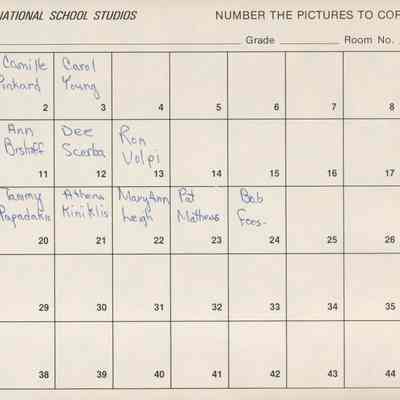 NATIONAL SCHOOL STUDIOS NUMBER THE PICTURES TO COR
Grade Room No.
Camille Carol
Pinkard Young
2 3 4 5 6 7 8
Ann Dee Ron
Scerba Volpi
11 12 13 14 15 16 17
Tammy Athena MaryAnn Pat Bob
Papadakis Kiniklis Leigh Mathews Foos-
20 21 22 23 24 25 26
29 30 31 32 33 34 35
38 39 40 41 42 43 44